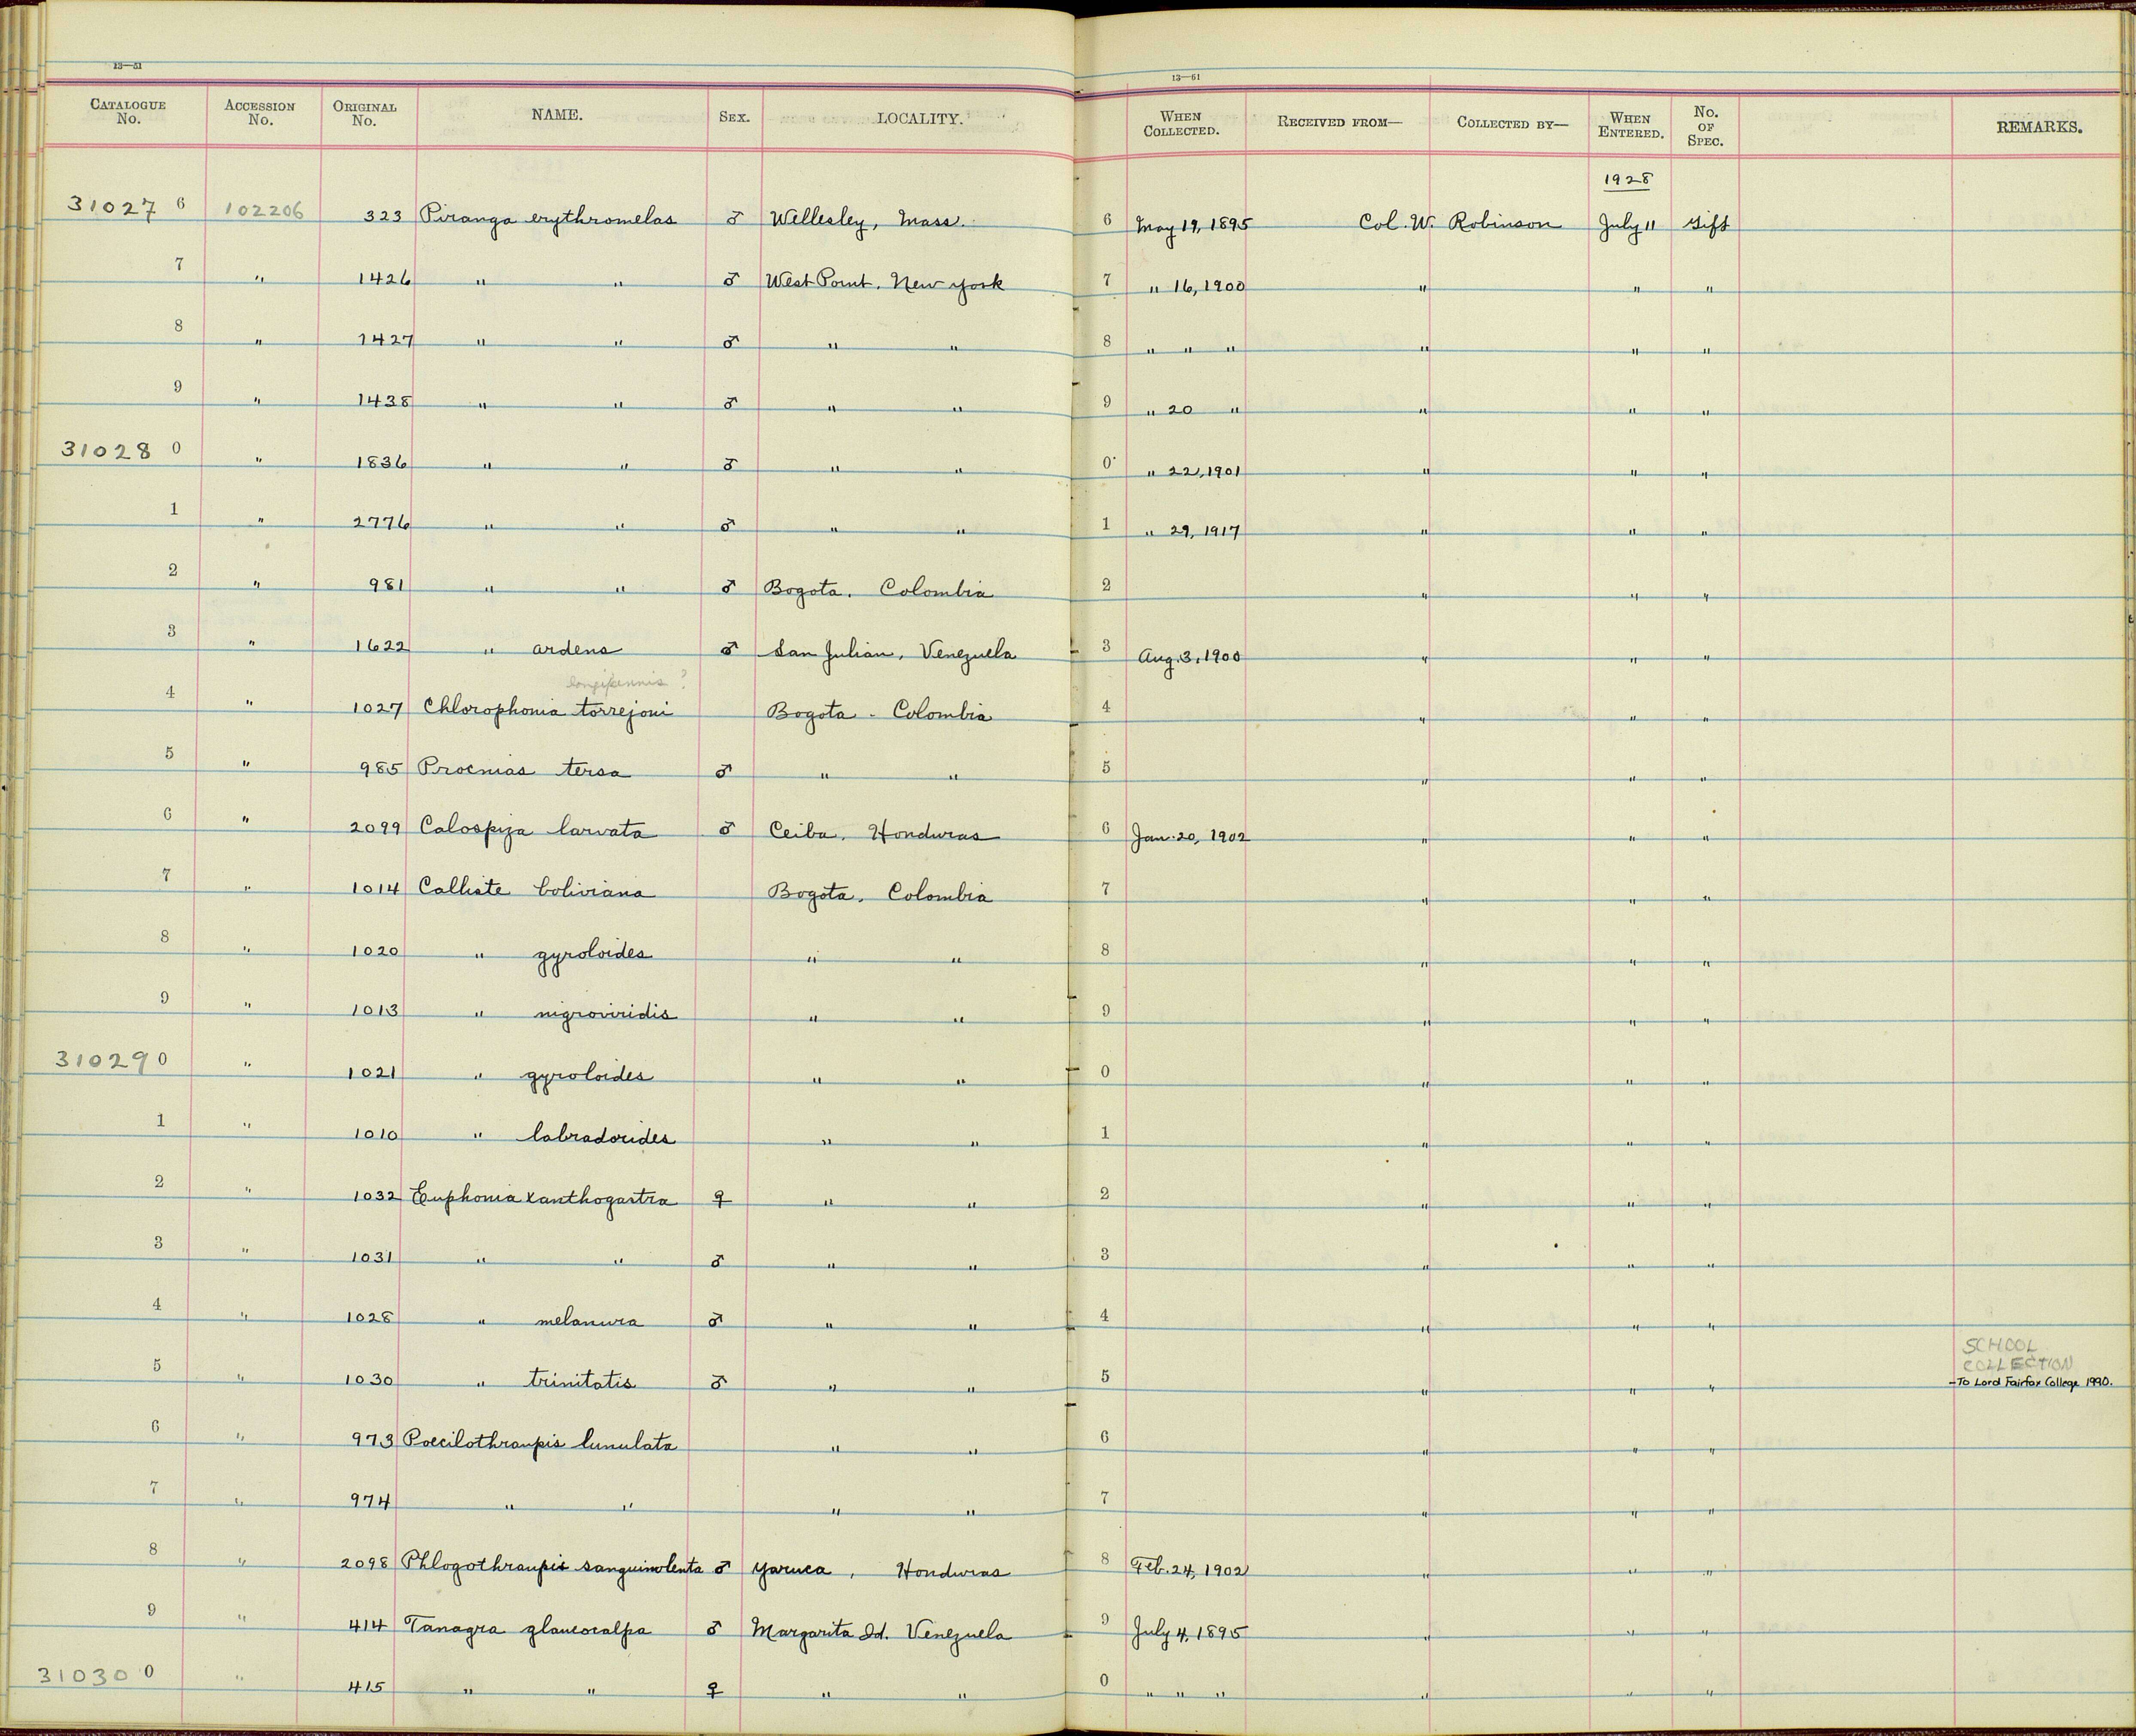 13—51
13—61
CATALOGUE No. ACCESSION No. ORIGINAL No. NAME. SEX. LOCALITY. WHEN COLLECTED. RECEIVED FROM— COLLECTED BY— WHEN ENTERED. No. OF SPEC. REMARKS.
1928
31027 6 102206 323 Piranga erythromelas ♂ Wellesley, Mass. 6 May 19, 1895 Col. W. Robinson July 11 Gift
7 " 1426 " " ♂ West Point, New York 7 " 16, 1900 " " "
8 " 1427 " " ♂ " " 8 " " " " " "
9 " 1438 " " ♂ " " 9 " 20 " " " "
31028 0 " 1836 " " ♂ " " 0 " 22, 1901 " " "
1 " 2776 " " ♂ " " 1 " 29, 1917 " " "
2 " 981 " " ♂ Bogota, Colombia 2 " " "
3 " 1622 " ardens ♂ San Julian, Venezuela 3 Aug. 3, 1900 " " "
longipennis ?
4 " 1027 Chlorophonia torrejoni Bogota - Colombia 4 " " "
5 " 985 Procnias tersa ♂ " " 5 " " "
6 " 2099 Calospiza larvata ♂ Ceiba, Honduras 6 Jan. 20, 1902 " " "
7 " 1014 Calliste boliviana Bogota, Colombia 7 " " "
8 " 1020 " gyroloides " " 8 " " "
9 " 1013 " nigroviridis " " 9 " " "
31029 0 " 1021 " gyroloides " " 0 " " "
1 " 1010 " labradorides " " 1 " " "
2 " 1032 Euphonia xanthogastra ♀ " " 2 " " "
3 " 1031 " " ♂ " " 3 " " "
4 " 1028 " melanura ♂ " " 4 " " "
SCHOOL
COLLECTION
5 " 1030 " trinitatis ♂ " " 5 " " " -To Lord Fairfax College 1990.
6 " 973 Poecilothraupis lunulata " " 6 " " "
7 " 974 " " " " 7 " " "
8 " 2098 Phlogothraupis sanguinolenta ♂ Yaruca, Honduras 8 Feb. 24, 1902 " " "
9 " 414 Tanagra glaucocalpa ♂ Margarita Id. Venezuela 9 July 4, 1895 " " "
31030 0 " 415 " " ♀ " " 0 " " " " " "